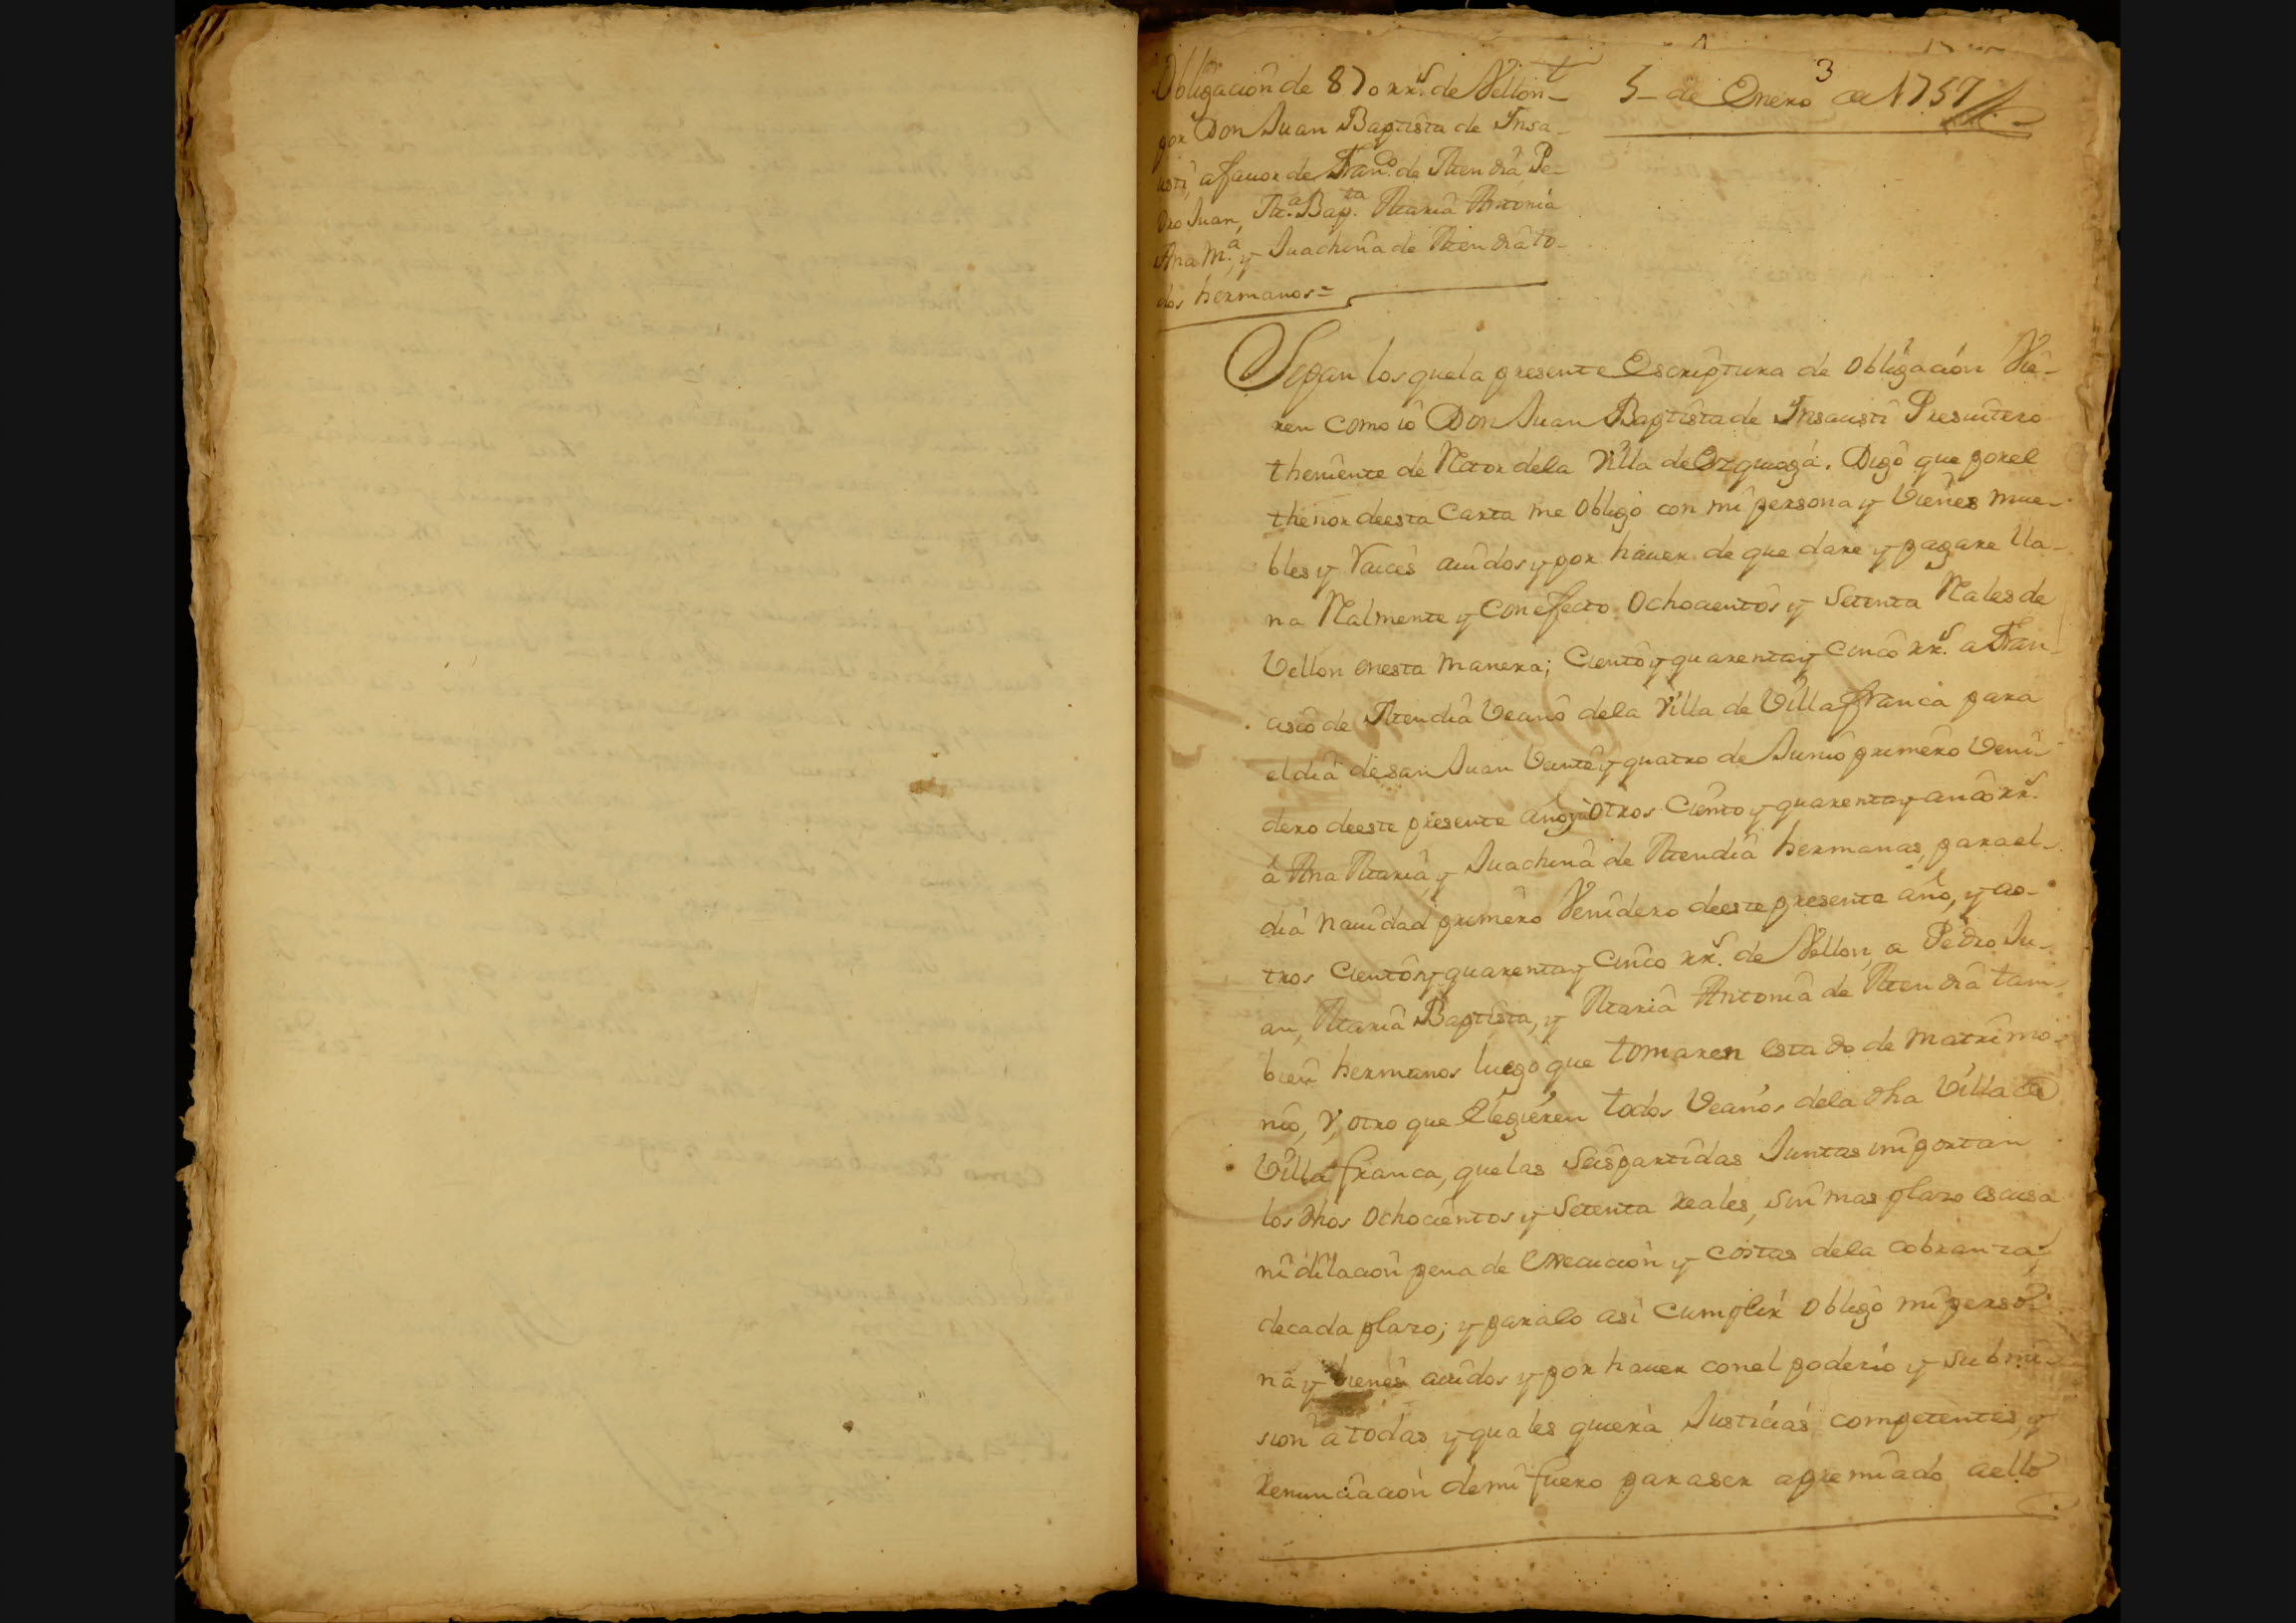 3
Obligacion de 870 rr.s de Vellon
5 de Enero de 1757
por Don Juan Baptista de Insa-
usti, a fauor de Fran.co de Mendia Pe-
dro Juan, M.a Bap.ta Maria Antonia
Ana M.a, y Juachina de Mendia to-
dos hermanos =
Sepan los que la presente Escriptura de obligacion Vie-
ren como io Don Juan Baptista de Insausti Presuitero
theniente de Retor de la Villa de Ezquioga. Digo que por el
thenor de esta Carta me obligo con mi persona y vienes mue-
bles y Raices auidos y por hauer de que dare y pagare lla-
na Realmente y con efecto ochocientos y setenta Reales de
Vellon en esta manera; Ciento y quarenta y cinco rr.s a Fran-
cisco de Mendia Vecino de la Villa de Villafranca para
el dia de san Juan Veinte y quatro de Junio primero veni-
dero de este presente año, y otros ciento y quarenta y cinco rr.s
a Ana Maria, y Juachina de Mendia hermanas, para el
dia nauidad primero Venidero de este presente año, y ao-
tros cientos y quarenta y cinco rr.s de Vellon, a Pedro Ju-
an, Maria Baptista, y Maria Antonia de Mendia tam-
bien hermanos luego que tomaren estado de matrimo-
nio, V, otro que Elegieren todos Vecinos de la dha Villa de
Villafranca, que las seis partidas Juntas importan
los dhos ochocientos y setenta reales, sin mas plazo escusa
ni dilacion pena de execucion y costas de la cobranza
de cada plazo; y para lo asi cumplir obligo mi perso-
na y bienes auidos y por hauer con el poderio y submi-
sion a todas y quales quiera Justicias competentes, y
Renunciacion de mi fuero para ser apremiado a ello